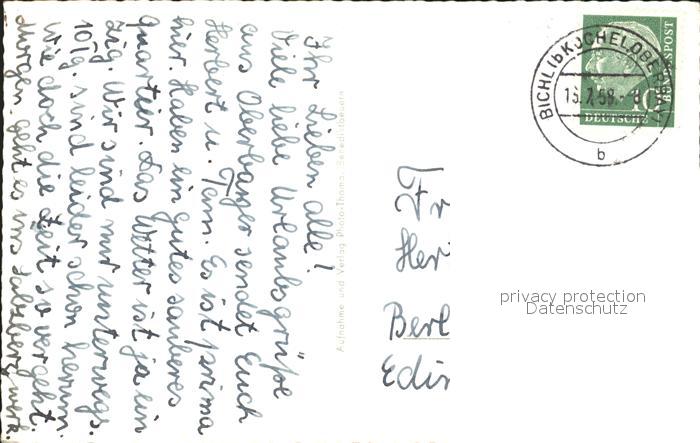 Ihr Lieben alle!
Viele liebe Urlaubsgrüße
aus Oberbayer sendet Euch
Herbert u. Fam. Es ist prima
hier. Haben ein gutes sauberes
Quartier. Das Wetter ist ja ein
Zug. Wir sind nur unterwegs.
10 Tg. sind leider schon herum.
Wie doch die Zeit so vergeht.
Morgen geht es ins Salzbergwerk
Aufnahme und Verlag Photo-Thoma, Benediktbeuern
BICHL (üb KOCHEL OBERBAY)
b
DEUTSCHE
BUNDESPOST
10
Fr
Her
Berl
Edin
privacy protection
Datenschutz